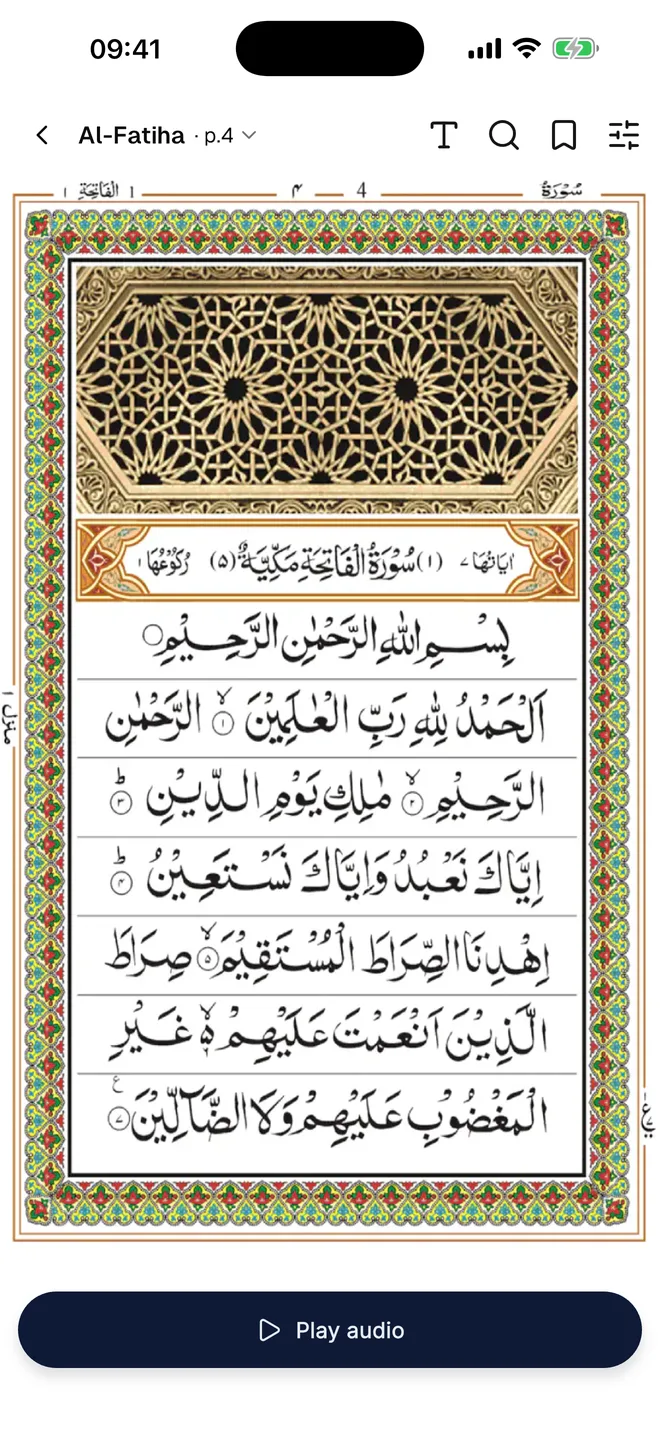 09:41
Al-Fatiha · p.4
سُوْرَةُ ۴ 4 الْفَاتِحَةِ ١
اٰيَاتُهَا ٧ (١) سُوْرَةُ الْفَاتِحَةِ مَكِّيَّةٌ (٥) رُكُوْعُهَا ١
بِسْمِ اللّٰهِ الرَّحْمٰنِ الرَّحِيْمِ
اَلْحَمْدُ لِلّٰهِ رَبِّ الْعٰلَمِيْنَ ۙ﴿١﴾ الرَّحْمٰنِ
الرَّحِيْمِ ۙ﴿٢﴾ مٰلِكِ يَوْمِ الدِّيْنِ ؕ﴿٣﴾
اِيَّاكَ نَعْبُدُ وَاِيَّاكَ نَسْتَعِيْنُ ؕ﴿۴﴾
اِهْدِنَا الصِّرَاطَ الْمُسْتَقِيْمَ ۙ﴿۵﴾ صِرَاطَ
الَّذِيْنَ اَنْعَمْتَ عَلَيْهِمْ ۙ۬ۥ غَيْرِ
الْمَغْضُوْبِ عَلَيْهِمْ وَلَا الضَّآلِّيْنَ ﴿٧﴾ ع
منزل ١
Play audio